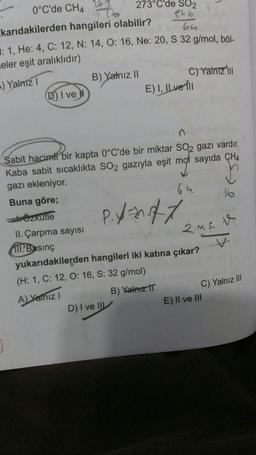 0°C'de CH4
273°C'de SO2
karıdakilerden hangileri olabilir?
: 1, He: 4, C: 12, N: 14, O: 16, Ne: 20, S 32 g/mol, böl-
eler eşit aralıklıdır)
) Yalnız I
B) Yalnız II
C) Yalnız III
D) I ve II
E) I, II ve III
n
Sabit hacimli bir kapta 0°C'de bir miktar SO2 gazı vardır.
Kaba sabit sıcaklıkta SO2 gazıyla eşit mol sayıda CH4
gazı ekleniyor.
64
16
Buna göre;
I. Özkütle
II. Çarpma sayısı
III. Basınç
yukarıdakilerden hangileri iki katına çıkar?
(H: 1, C: 12, O: 16, S: 32 g/mol)
A) Yalnız I
B) Yalnız II
C) Yalnız III
D) I ve III
E) II ve III